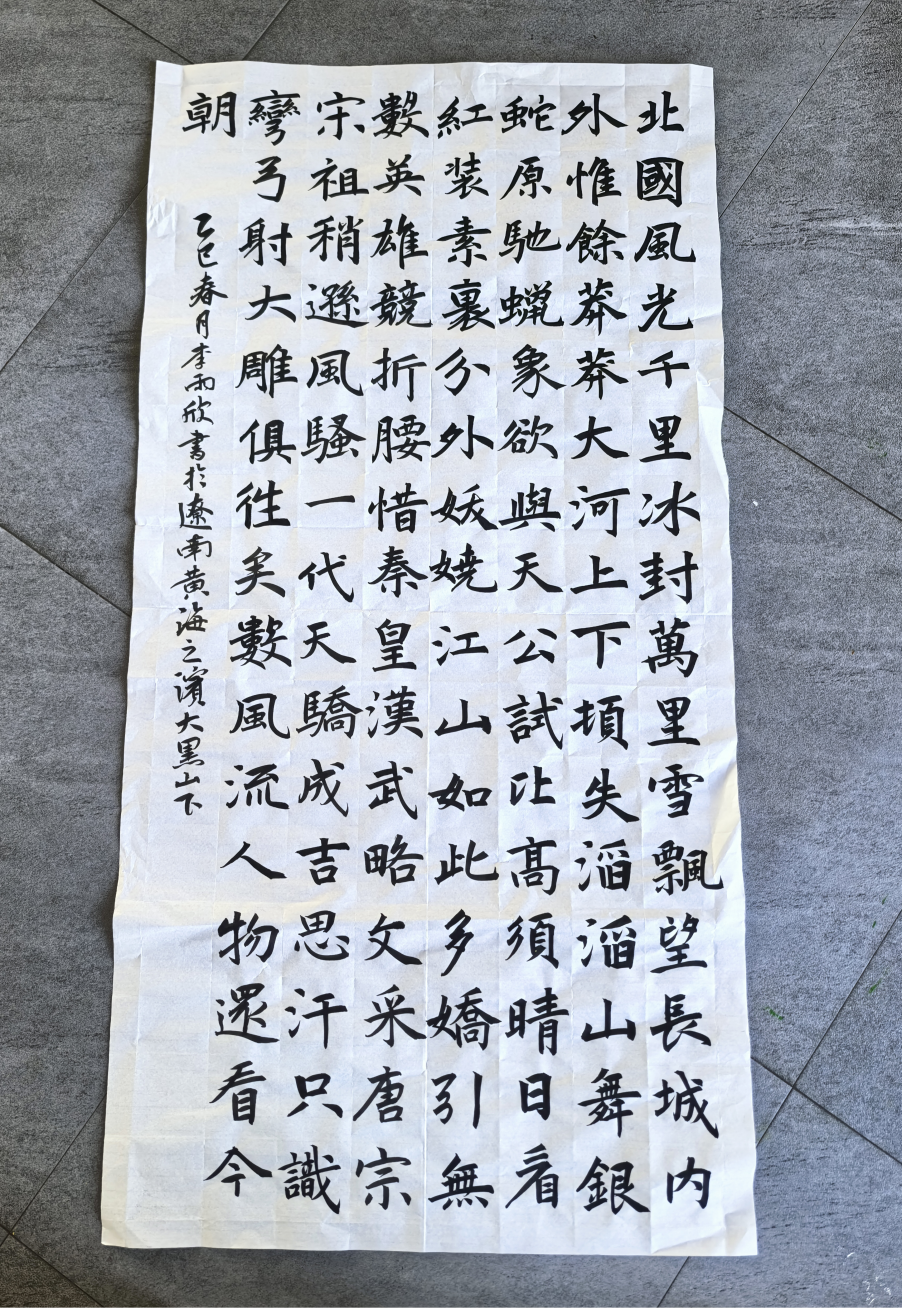 北國風光千里冰封萬里雪飄望長城内
外惟餘莽莽大河上下頓失滔滔山舞銀
蛇原馳蠟象欲與天公試比髙須晴日看
紅装素裹分外妖嬈江山如此多嬌引無
數英雄競折腰惜秦皇漢武略文采唐宗
宋祖稍遜風騷一代天驕成吉思汗只識
彎弓射大雕俱往矣數風流人物還看今
朝
乙巳春月李雨欣書於遼南黄海之濱大黑山下